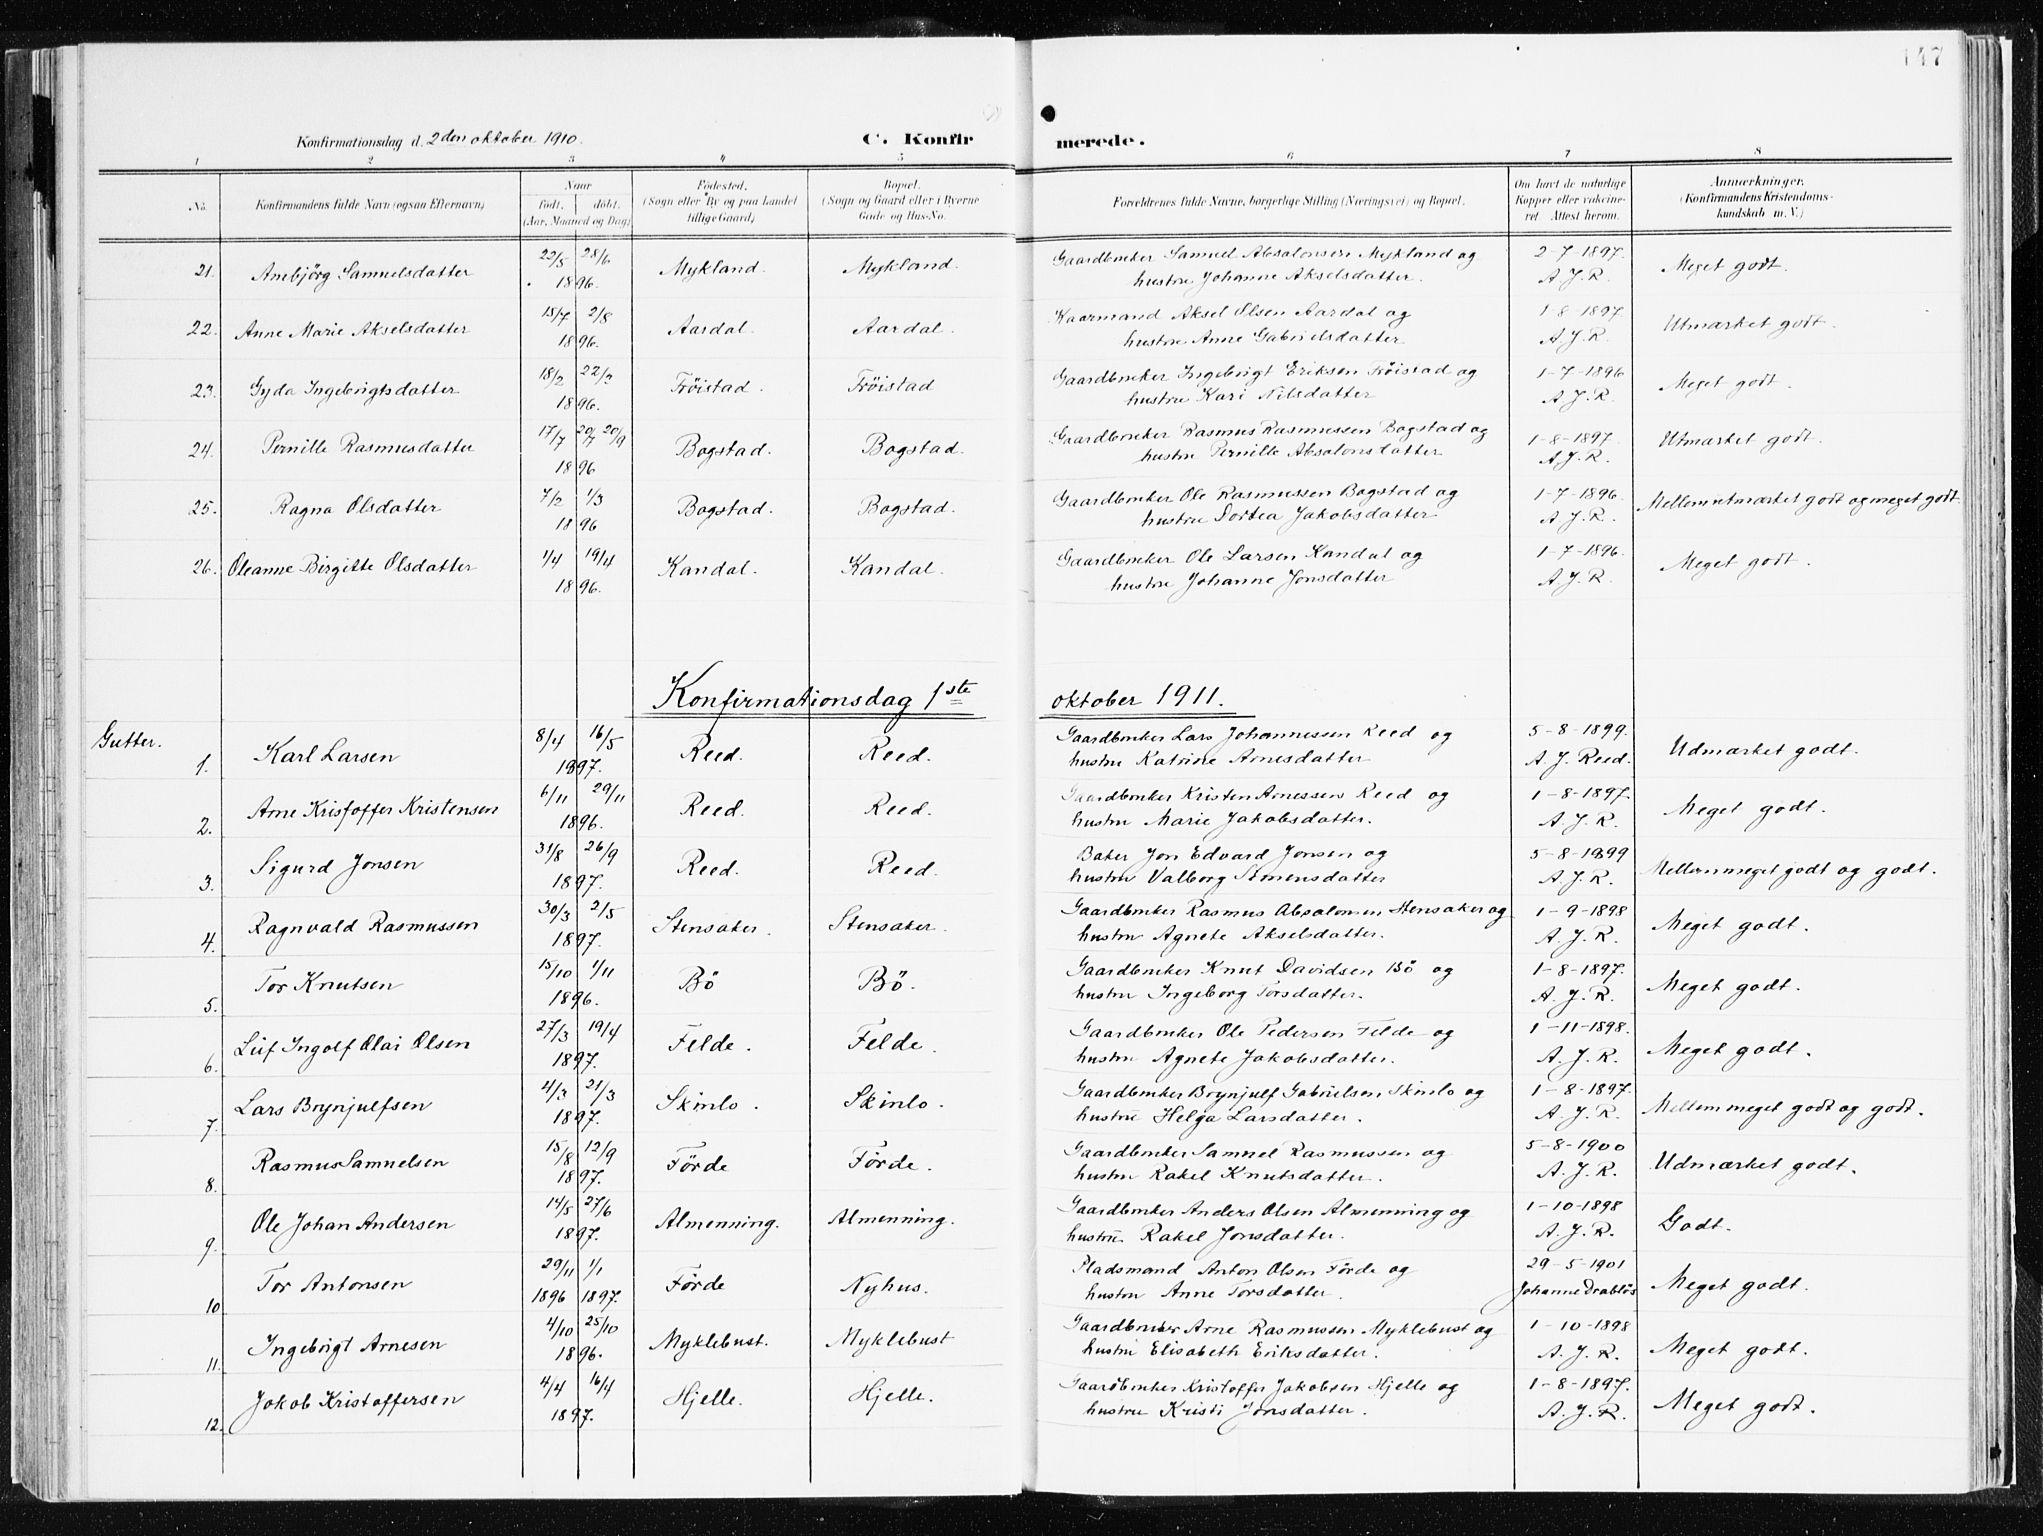 147
Konfirmationsdag d. 2den oktober 1910. C. Konfirmerede.
1 2 3 4 5 6 7 8
No. Konfirmandens fulde Navn (ogsaa Efternavn) Naar født. døbt. (Aar, Maaned og Dag) Fødested. (Sogn eller By og paa Landet tillige Gaard) Bopæl. (Sogn og Gaard eller i Byerne Gade og Hus-No. Forældrenes fulde Navne, borgerlige Stilling (Næringsvei) og Bopæl. Om havt de naturlige Kopper eller vaccineret. Attest herom. Anmærkninger. (Konfirmandens Kristendomskundskab m. V.)
21. Ambjörg Samuelsdatter 22/5 28/6 1896. Mykland. Mykland. Gaardbruker Samuel Absalonsen Mykland og hustru Johanne Akselsdatter. 2-7-1897. A. J. R. Meget godt.
22. Anne Marie Akselsdatter 15/7 2/8 1896. Aardal. Aardal. Kaarmand Aksel Olsen Aardal og hustru Anne Gabrielsdatter 1-8-1897 A. J. R. Utmærket godt.
23. Gyda Ingebrigtsdatter 18/2 22/3 1896. Fröistad. Fröistad Gaardbruker Ingebrigt Eriksen Fröistad og hustru Kari Nilsdatter 1-7-1896 A. J. R. Meget godt.
24. Pernille Rasmusdatter 17/7 20/7 20/9 1896 Bogstad. Bogstad. Gaardbruker Rasmus Rasmussen Bogstad og hustru Pernille Absalonsdatter 1-8-1897. A. J. R. Utmærket godt.
25. Ragna Olsdatter 7/2 1/3 1896 Bogstad. Bogstad. Gaardbruker Ole Rasmussen Bogstad og hustru Dortea Jakobsdatter 1-7-1896. A. J. R. Mellem utmærket godt og meget godt
26. Oleanne Birgitte Olsdatter 1/4 19/4 1896. Kandal. Kandal. Gaardbruker Ole Larsen Kandal og hustru Johanne Jonsdatter 1-7-1896. A. J. R. Meget godt.
Konfirmationsdag 1ste oktober 1911.
Gutter.
1. Karl Larsen 8/4 16/5 1897. Reed. Reed. Gaardbruker Lars Johannessen Reed og hustru Katrine Arnesdatter 5-8-1899. A. J. Reed. Udmærket godt.
2. Arne Kristoffer Kristensen 6/11 29/11 1896. Reed. Reed. Gaardbruker Kristen Arnessen Reed og hustru Marie Jakobsdatter. 1-8-1897. A. J. R. Meget godt.
3. Sigurd Jonsen 31/8 26/9 1897. Reed. Reed. Baker Jon Edvard Jonsen og hustru Valborg Simensdatter 5-8-1899 A. J. R. Mellem meget godt og godt.
4. Ragnvald Rasmussen 30/3 2/5 1897. Stensaker. Stensaker. Gaardbruker Rasmus Absalonsen Stensaker og hustru Agnete Akselsdatter. 1-9-1898 A. J. R. Meget godt.
5. Tor Knutsen 15/10 1/11 1896. Bö Bö. Gaardbruker Knut Davidsen Bö og hustru Ingeborg Torsdatter. 1-8-1897. A. J. R. Meget godt.
6. Leif Ingolf Olai Olsen 27/3 19/4 1897. Felde. Felde. Gaardbruker Ole Pedersen Felde og hustru Agnete Jakobsdatter. 1-11-1898. A. J. R. Meget godt.
7. Lars Brynjulfsen 4/3 21/3 1897. Skinlo. Skinlo. Gaardbruker Brynjulf Gabrielsen Skinlo og hustru Helga Larsdatter. 1-8-1897. A. J. R. Mellem meget godt og godt.
8. Rasmus Samuelsen 15/8 12/9 1897. Förde Förde. Gaardbruker Samuel Rasmussen og hustru Rakel Knutsdatter. 5-8-1900 A. J. R. Udmærket godt.
9. Ole Johan Andersen 14/5 27/6 1897. Almenning. Almenning. Gaardbruker Anders Olsen Almenning og hustru Rakel Jonsdatter. 1-10-1898 A. J. R. Godt.
10 Tor Antonsen 29/11 1/1 1896 1897. Förde Nyhus. Pladsmand Anton Olsen Förde og hustru Anne Torsdatter. 29-5-1901 Johanne Drabløs Meget godt.
11. Ingebrigt Arnesen 4/10 25/10 1896. Myklebust. Myklebust Gaardbruker Arne Rasmussen Myklebust og hustru Elisabeth Eriksdatter. 1-10-1898 A. J. R. Meget godt.
12. Jakob Kristoffersen 4/4 16/4 1897. Hjelle. Hjelle. Gaardbruker Kristoffer Jakobsen Hjelle og hustru Kristi Jonsdatter. 1-8-1897. A. J. R. Meget godt.